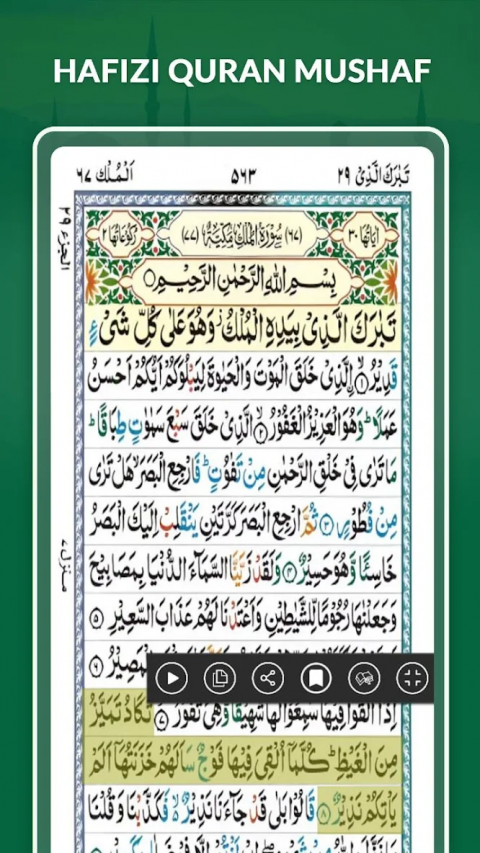 HAFIZI QURAN MUSHAF
تَبٰرَكَ الَّذِیْ ٢٩
٥٦٣
اَلْمُلْك ٦٧
الجزء ٢٩
اٰیَاتُهَا ٣٠
(٦٧) سُوْرَةُ الْمُلْكِ مَكِّیَّةٌ (٧٧)
رُكُوْعَاتُهَا ٢
بِسْمِ اللّٰهِ الرَّحْمٰنِ الرَّحِیْمِ
تَبٰرَكَ الَّذِیْ بِیَدِهِ الْمُلْكُ وَهُوَ عَلٰی كُلِّ شَیْءٍ
قَدِیْرُ ۙ﴿١﴾ اۨلَّذِیْ خَلَقَ الْمَوْتَ وَالْحَیٰوةَ لِیَبْلُوَكُمْ اَیُّكُمْ اَحْسَنُ
عَمَلًا ؕ وَهُوَ الْعَزِیْزُ الْغَفُوْرُ ۙ﴿٢﴾ الَّذِیْ خَلَقَ سَبْعَ سَمٰوٰتٍ طِبَاقًا ؕ
مَا تَرٰی فِیْ خَلْقِ الرَّحْمٰنِ مِنْ تَفٰوُتٍ ؕ فَارْجِعِ الْبَصَرَ ۙ هَلْ تَرٰی
مِنْ فُطُوْرٍ ﴿٣﴾ ثُمَّ ارْجِعِ الْبَصَرَ كَرَّتَیْنِ یَنْقَلِبْ اِلَیْكَ الْبَصَرُ
خَاسِئًا وَّهُوَ حَسِیْرٌ ﴿٤﴾ وَلَقَدْ زَیَّنَّا السَّمَآءَ الدُّنْیَا بِمَصَابِیْحَ
وَجَعَلْنٰهَا رُجُوْمًا لِّلشَّیٰطِیْنِ وَاَعْتَدْنَا لَهُمْ عَذَابَ السَّعِیْرِ ﴿٥﴾
الْمَصِیْرُ ﴿٦﴾
اِذَاۤ اُلْقُوْا فِیْهَا سَمِعُوْا لَهَا شَهِیْقًا وَّهِیَ تَفُوْرُ ۙ﴿٧﴾ تَكَادُ تَمَیَّزُ
مِنَ الْغَیْظِ ؕ كُلَّمَاۤ اُلْقِیَ فِیْهَا فَوْجٌ سَاَلَهُمْ خَزَنَتُهَاۤ اَلَمْ
یَاْتِكُمْ نَذِیْرٌ ﴿٨﴾ قَالُوْا بَلٰی قَدْ جَآءَنَا نَذِیْرٌ ۬ۙ فَكَذَّبْنَا وَقُلْنَا